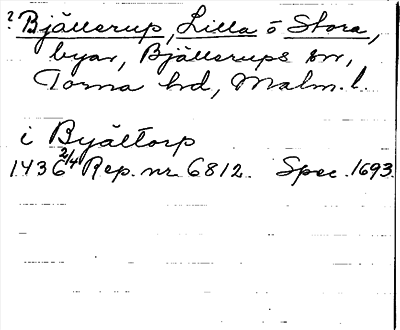 ? Bjällerup, Lilla o Stora,
byar, Bjällerups sn,
Torna hd, Malm. l.
i Byältorp
1436 2/4 Rep. nr 6812. Spec. 1693.